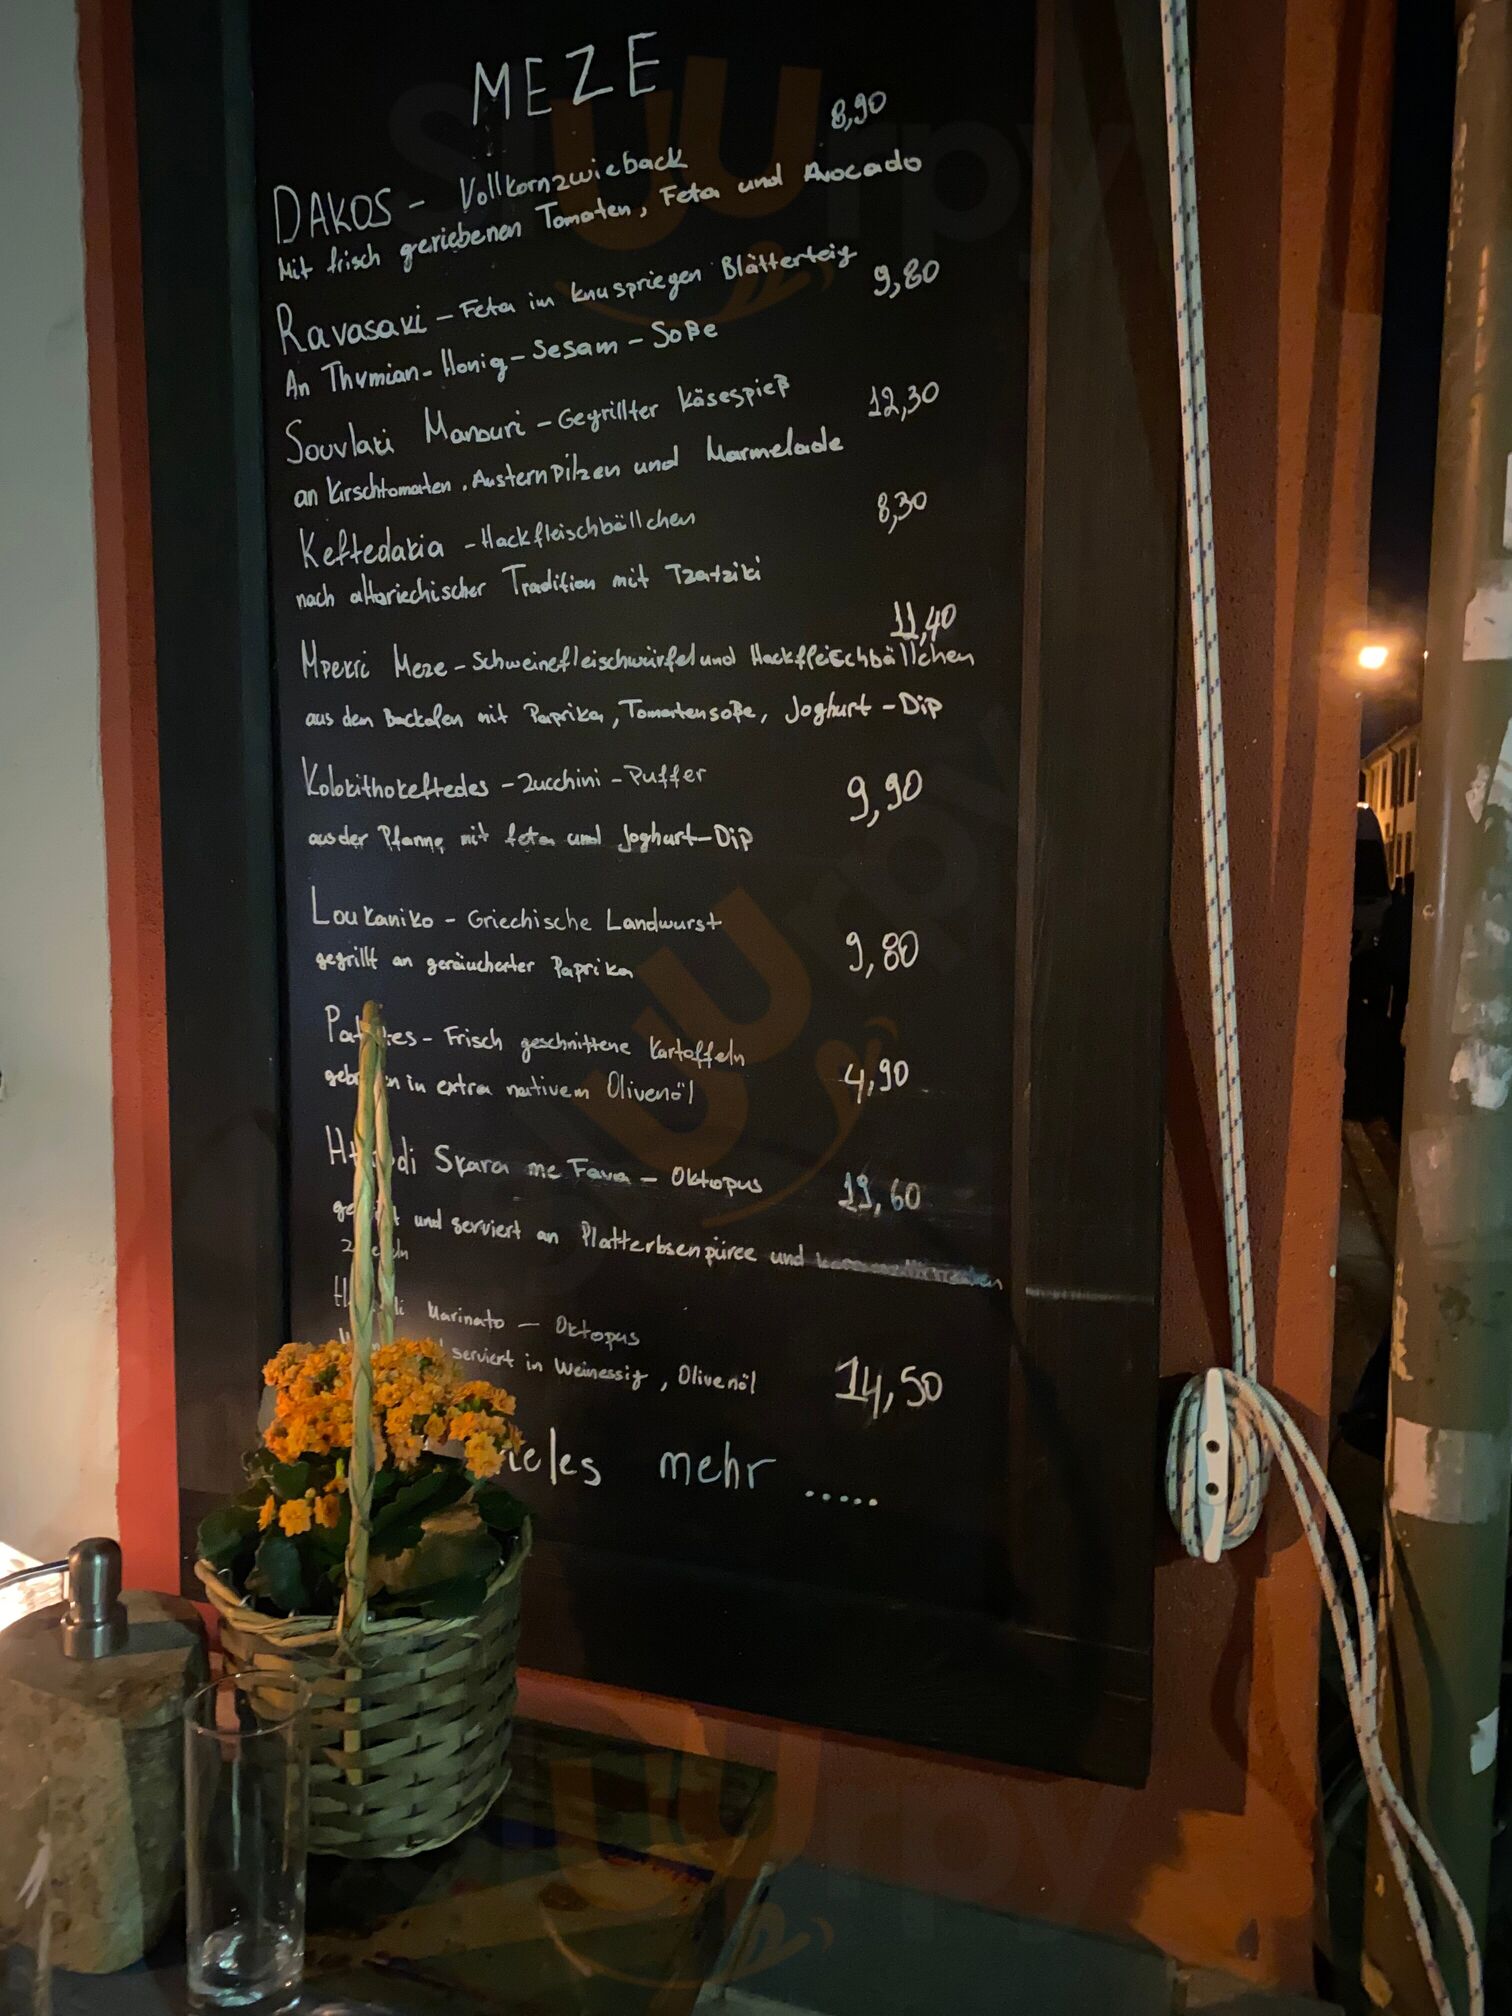 MEZE
8,90
DAKOS - Vollkornzwieback
Mit frisch geriebenen Tomaten, Feta und Avocado
Ravasaki - Feta im knuspriegen Blätterteig
9,80
An Thymian-Honig-Sesam-Soße
Souvlaki Manouri - Gegrillter Käsespieß
12,30
an Kirschtomaten, Austernpilzen und Marmelade
Keftedakia - Hackfleischbällchen
8,30
nach altgriechischer Tradition mit Tzatziki
11,40
Mpekri Meze - Schweinefleischwürfel und Hackfleischbällchen
aus dem Backofen mit Paprika, Tomatensoße, Joghurt-Dip
Kolokithokeftedes - Zucchini-Puffer
9,90
aus der Pfanne mit feta und Joghurt-Dip
Loukaniko - Griechische Landwurst
9,80
gegrillt an geräucherter Paprika
Frisch geschnittene Kartoffeln
4,90
in extra nativem Olivenöl
Skara me Fava - Oktopus
19,60
und serviert an Platterbsenpüree und
Marinato - Oktopus
serviert in Weinessig, Olivenöl
14,50
mehr .....
slurrpy